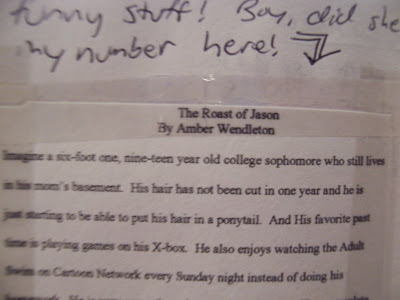 funny stuff! Boy, did she
my number here!
The Roast of Jason
By Amber Wendleton
Imagine a six-foot one, nine-teen year old college sophomore who still lives
in his mom's basement. His hair has not been cut in one year and he is
just starting to be able to put his hair in a ponytail. And His favorite past
time is playing games on his X-box. He also enjoys watching the Adult
Swim on Cartoon Network every Sunday night instead of doing his